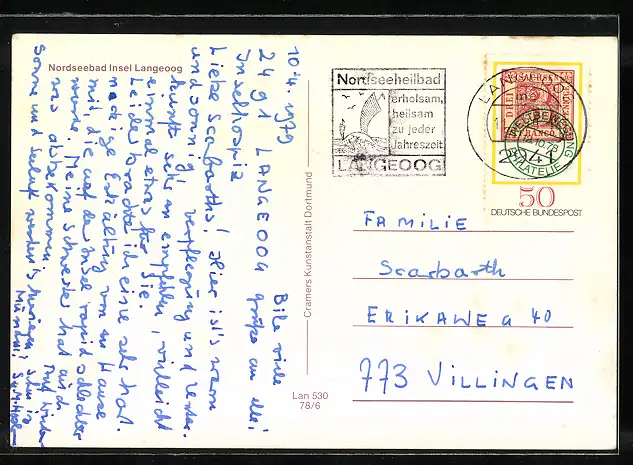 Nordseebad Insel Langeoog
10.4.1979
2941 LANGEOOG
Inselhospiz
Liebe Scarbarths! Hier ist's warm
und sonnig, Verpflegung und Unter-
kunft sehr zu empfehlen, vielleicht
einmal etwas für Sie.
Leider brachte ich eine sehr hart-
näckige Erkältung von zu Hause
mit, die auf der Insel rapid schlechter
wurde. Meine Schwester hat auch
was abbekommen.
Sonne und Seeluft werden's kurieren
Bile viele
Grüße an alle
Cramers Kunstanstalt Dortmund
Lan 530
78/6
Nordseeheilbad
erholsam,
heilsam
zu jeder
Jahreszeit
LANGEOOG
FRANCO
WELTBEWEGUNG
PHILATELIE
12.10.78
50
DEUTSCHE BUNDESPOST
FAMILIE
Scarbarth
ERIKAWEG 40
773 VILLINGEN